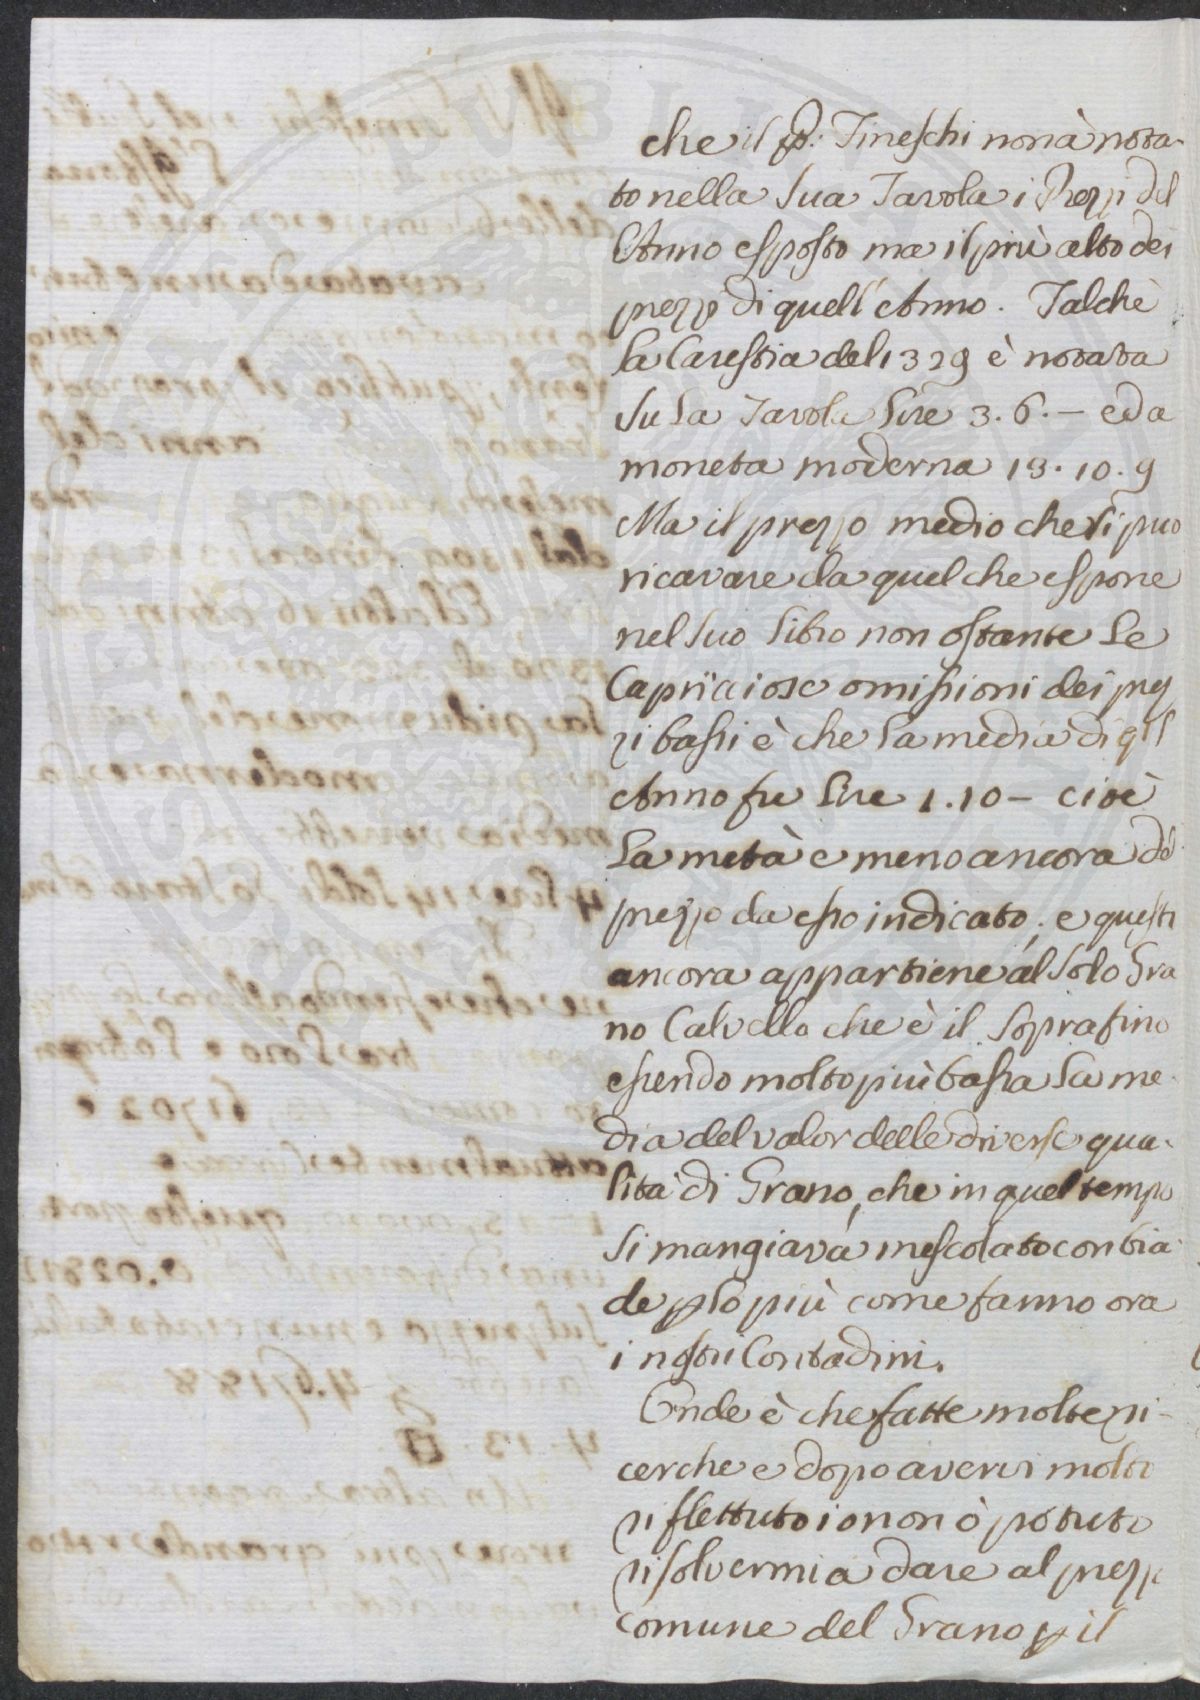 che il P. Fineschi non à nota-
to nella sua Tavola i Prezzi del
l'Anno esposto ma il più alto dei
prezzi di quell'Anno. Talchè
la Carestia del 1329 è notata
su la Tavola Lire 3. 6. — ed a
moneta moderna 13. 10. 9
Ma il prezzo medio che si può
ricavare da quel che espone
nel suo Libro non ostante le
Capricciose omissioni dei prez
zi bassi è che la media di qll
Anno fu Lire 1. 10 — cioè
La metà e meno ancora del
prezzo da esso indicato; e questi
ancora appartiene al solo Gra
no Calvello che è il soprafino
essendo molto più bassa la me-
dia del valor delle diverse qua-
lità di Grano, che in quel tempo
si mangiava mescolato con bia-
de p lo più come fanno ora
i nostri Contadini.
Onde è che fatte molte ri-
cerche e dopo averci molto
riflettuto io non ò potuto
risolvermi a dare al prezzo
comune del Grano p il